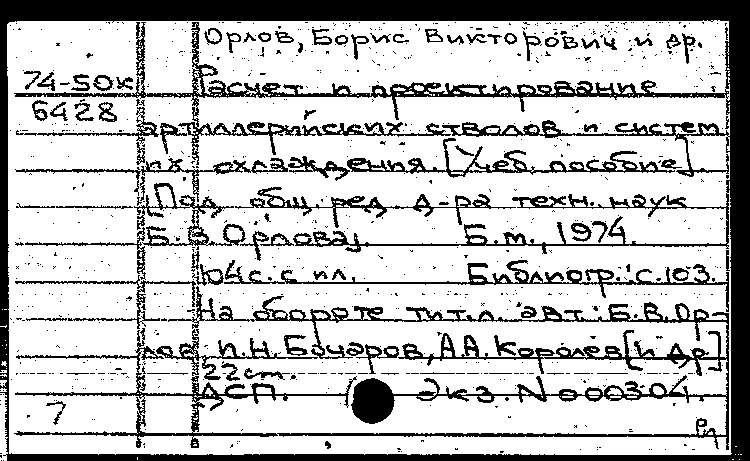 Орлов, Борис Викторович и др.
74-50к Расчет и проектирование
6428
артиллерийских стволов и систем
их охлаждения. [Учеб. пособие].
[Под общ. ред. д-ра техн. наук
Б.В. Орлова]. Б.м., 1974.
104 с. с ил. Библиогр.: с. 103.
На обороте тит.л. авт.: Б.В. Ор-
лов, И.Н. Бочаров, А.А. Королев [и др]
22 см.
ДСП. Экз. N 000304.
7